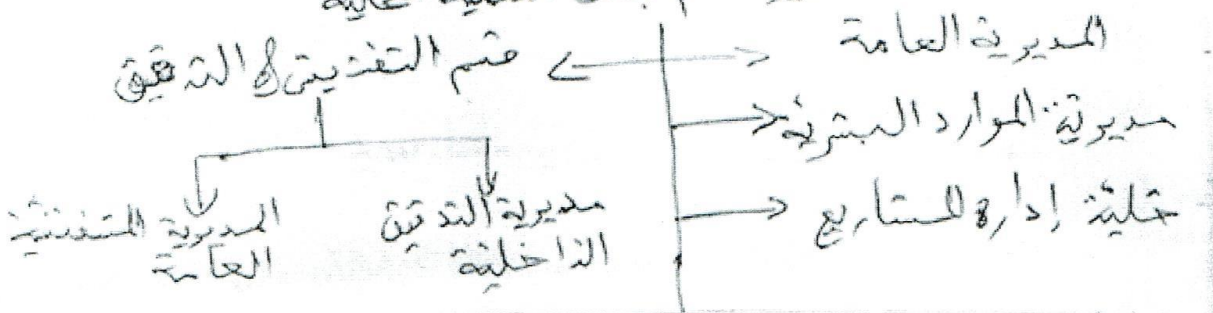 المديرية العامة
قسم التفتيش و التدقيق
مديرية الموارد البشرية
خلية إدارة المشاريع
مديرية التدقيق
الداخلية
المديرية
العامة